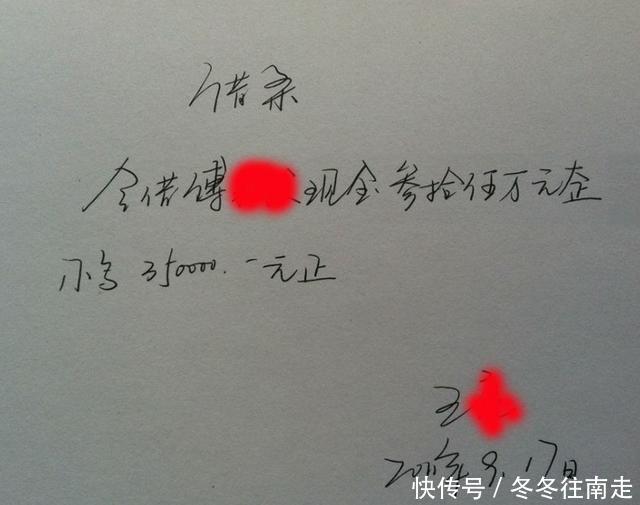 借条
今借傅现金叁拾伍万元正
小写 350000.一元正
王
2011年9.17日
快传号/冬冬往南走